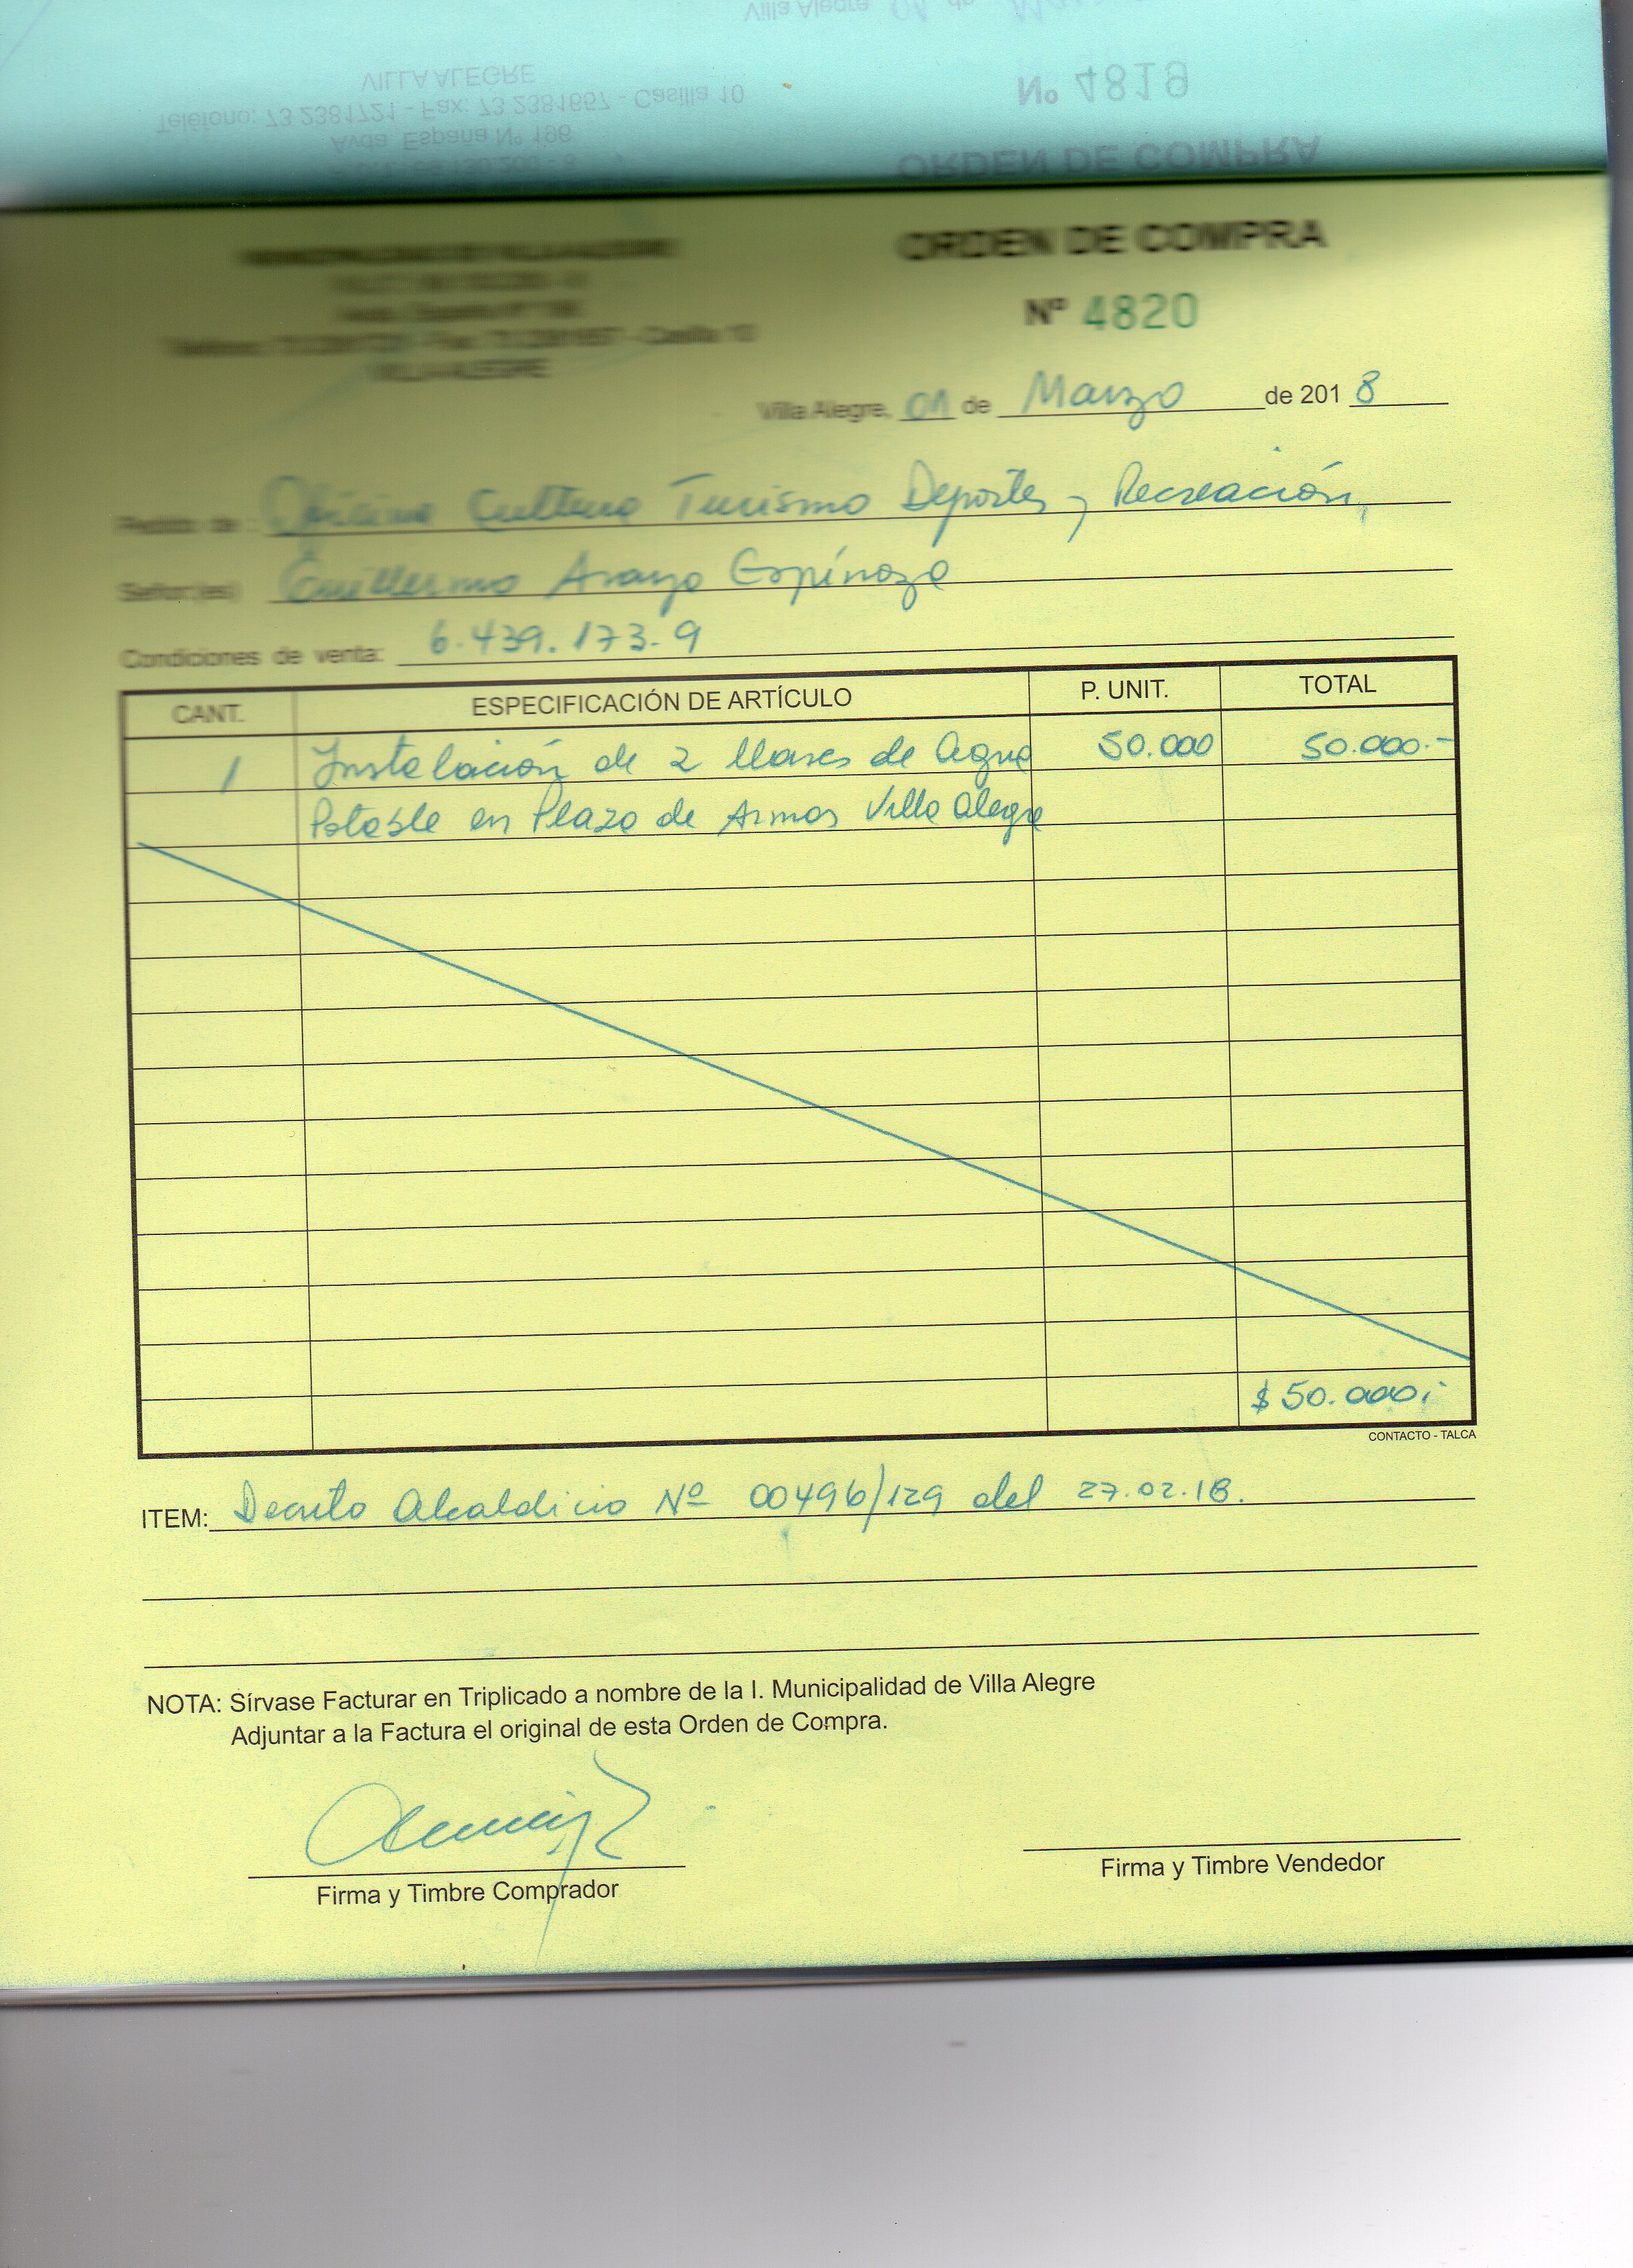 Villa Alegre, 01 de Ma
Nº 4819
VILLA ALEGRE
Teléfono: 73 2381721 - Fax: 73 2381657 - Casilla 10
Avda. España Nº 196
ORDEN DE COMPRA
MUNICIPALIDAD DE VILLA ALEGRE
ORDEN DE COMPRA
Nº 4820
VILLA ALEGRE
Villa Alegre, 01 de Marzo de 2018
Pedido de : Oficina Cultura Turismo Deportes y Recreación,
Señor(es) Guillermo Araya Espinoza
Condiciones de venta: 6.439.173-9
CANT. ESPECIFICACIÓN DE ARTÍCULO P. UNIT. TOTAL
1 Instalación de 2 llaves de Agua 50.000 50.000.-
Potable en Plaza de Armas Villa Alegre
$ 50.000.-
CONTACTO - TALCA
ITEM: Decreto Alcaldicio Nº 00496/129 del 27.02.18.
NOTA: Sírvase Facturar en Triplicado a nombre de la I. Municipalidad de Villa Alegre
Adjuntar a la Factura el original de esta Orden de Compra.
Firma y Timbre Comprador
Firma y Timbre Vendedor